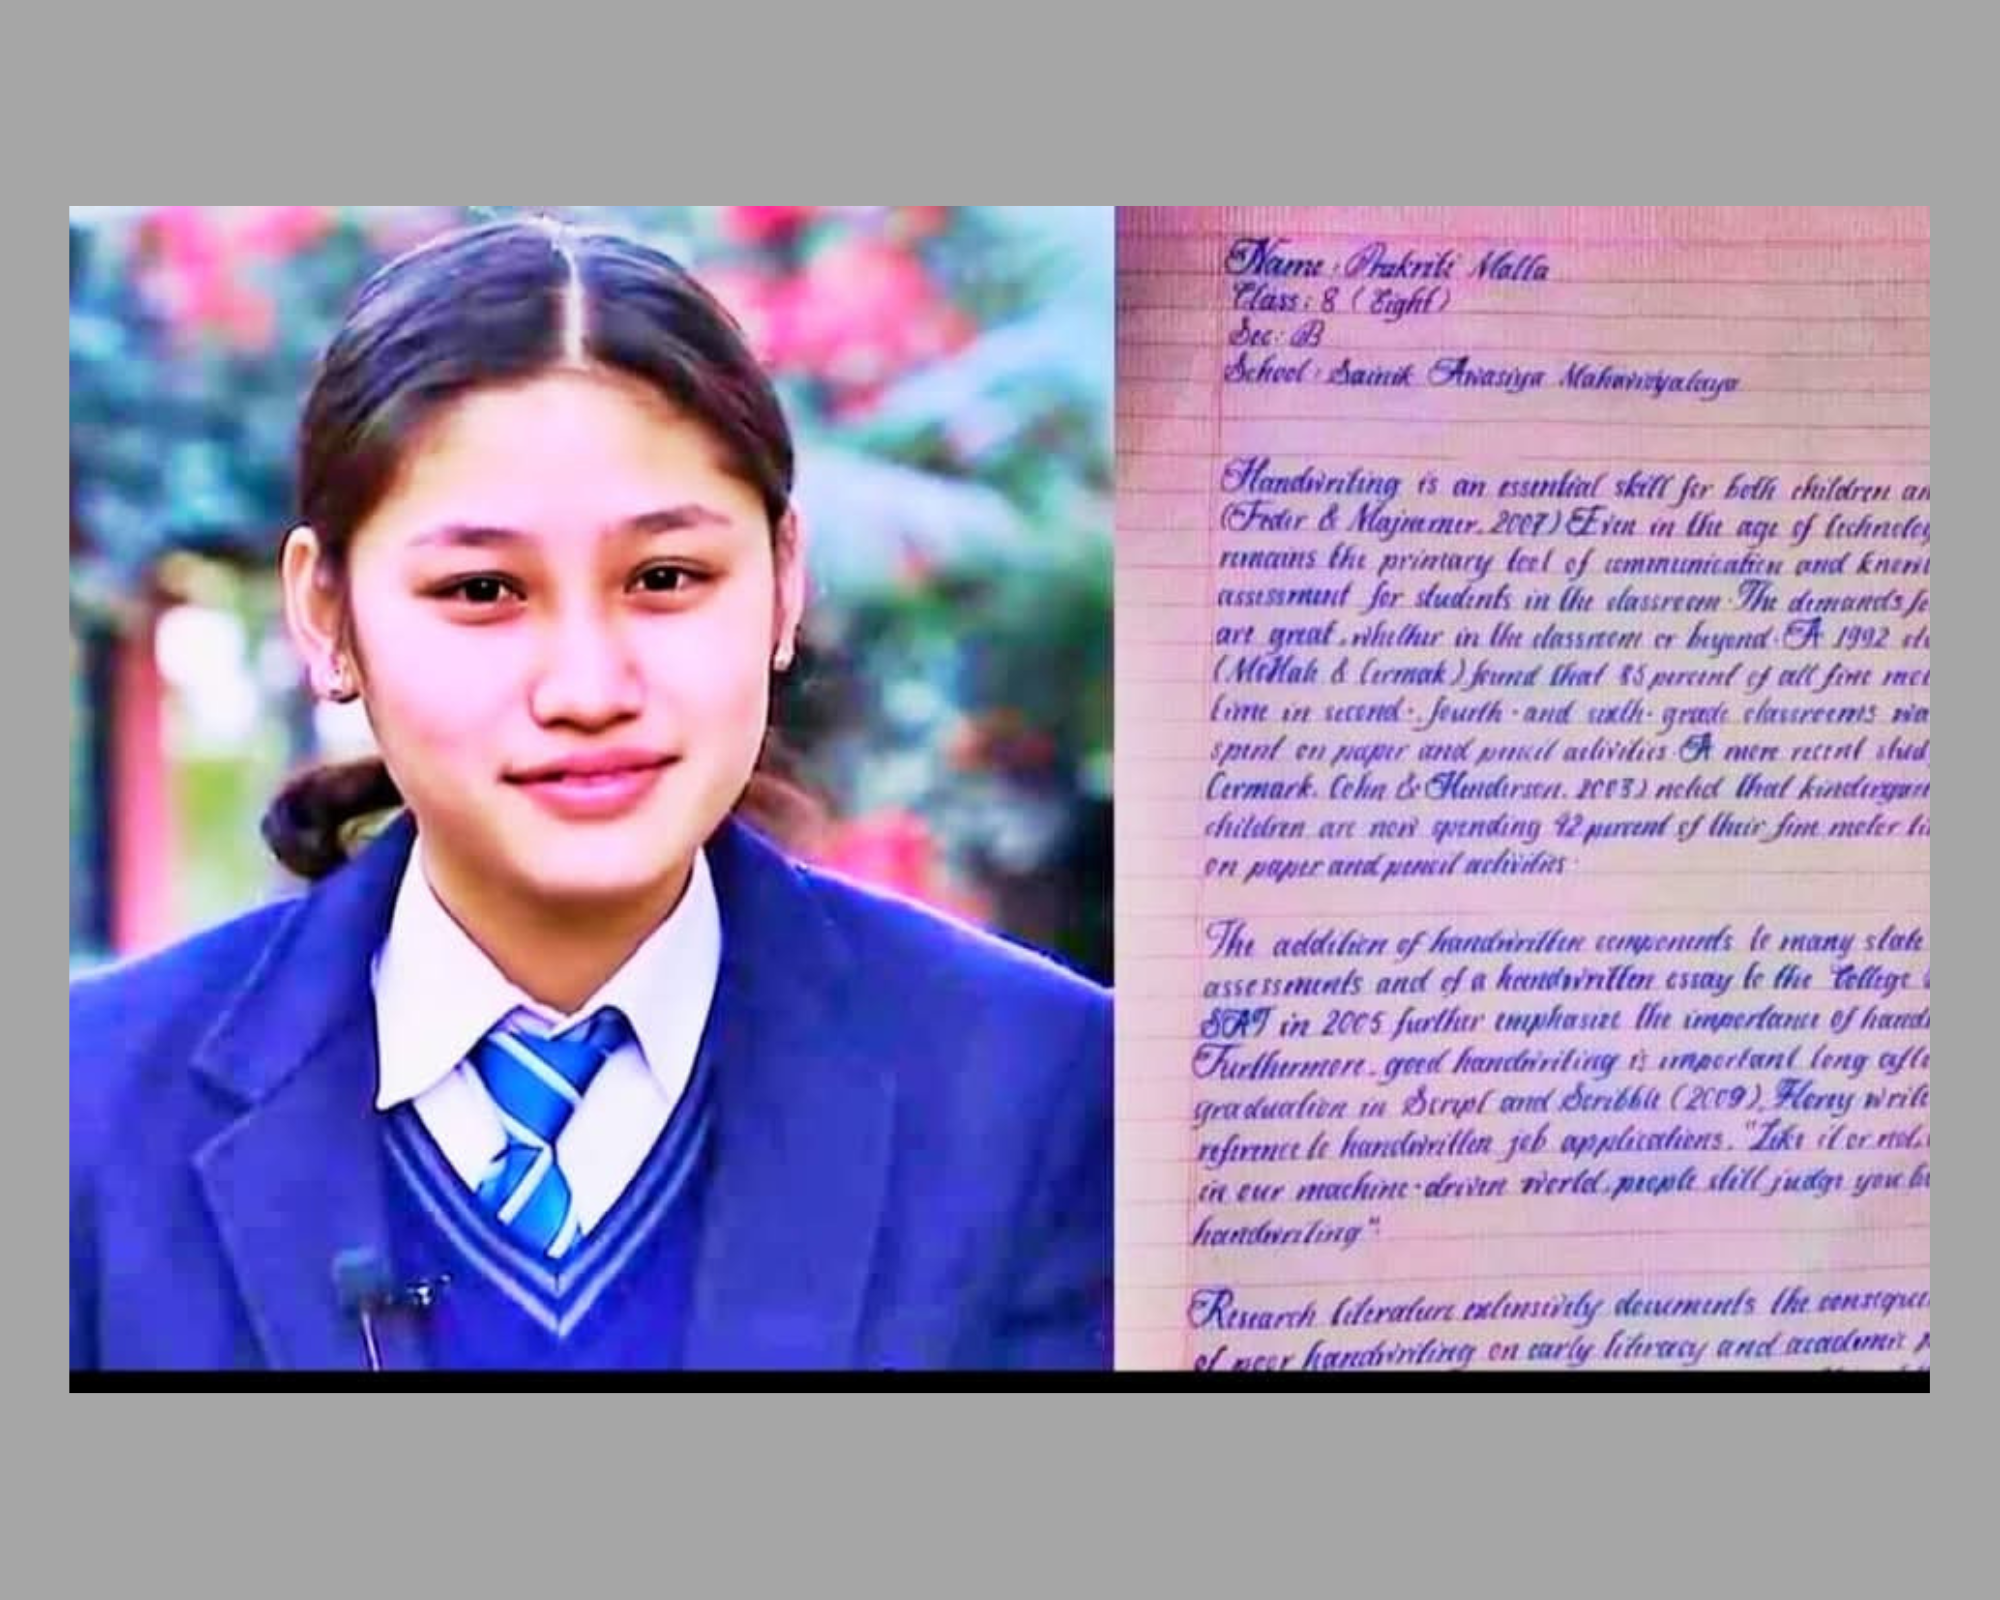 Name : Prakriti Malla
Class : 8 (Eight)
Sec : B
School : Sainik Awasiya Mahavidyalaya
Handwriting is an essential skill for both children an
(Feder & Majnemer, 2007) Even in the age of technolog
remains the primary tool of communication and knowl
assessment for students in the classroom. The demands fo
are great, whether in the classroom or beyond. A 1992
(McHale & Cermak) found that 85 percent of all fine mot
time in second-, fourth-and sixth-grade classrooms wa
spent on paper and pencil activities. A more recent stud
Cermark, Cohn & Henderson, 2003) noted that kindergar
children are now spending 42 percent of their fine motor ti
on paper and pencil activities.
The addition of handwritten components to many state
assessments and of a handwritten essay to the College
SAT in 2005 further emphasize the importance of hand
Furthermore, good handwriting is important long afte
graduation in Script and Scribble (2009), Florey write
reference to handwritten job applications. "Like it or not,
in our machine-driven world, people still judge you b
handwriting"
Research literature extensively documents the consequ
of poor handwriting on early literacy and academic